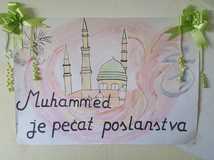 Muhammed
je pečat poslanstva